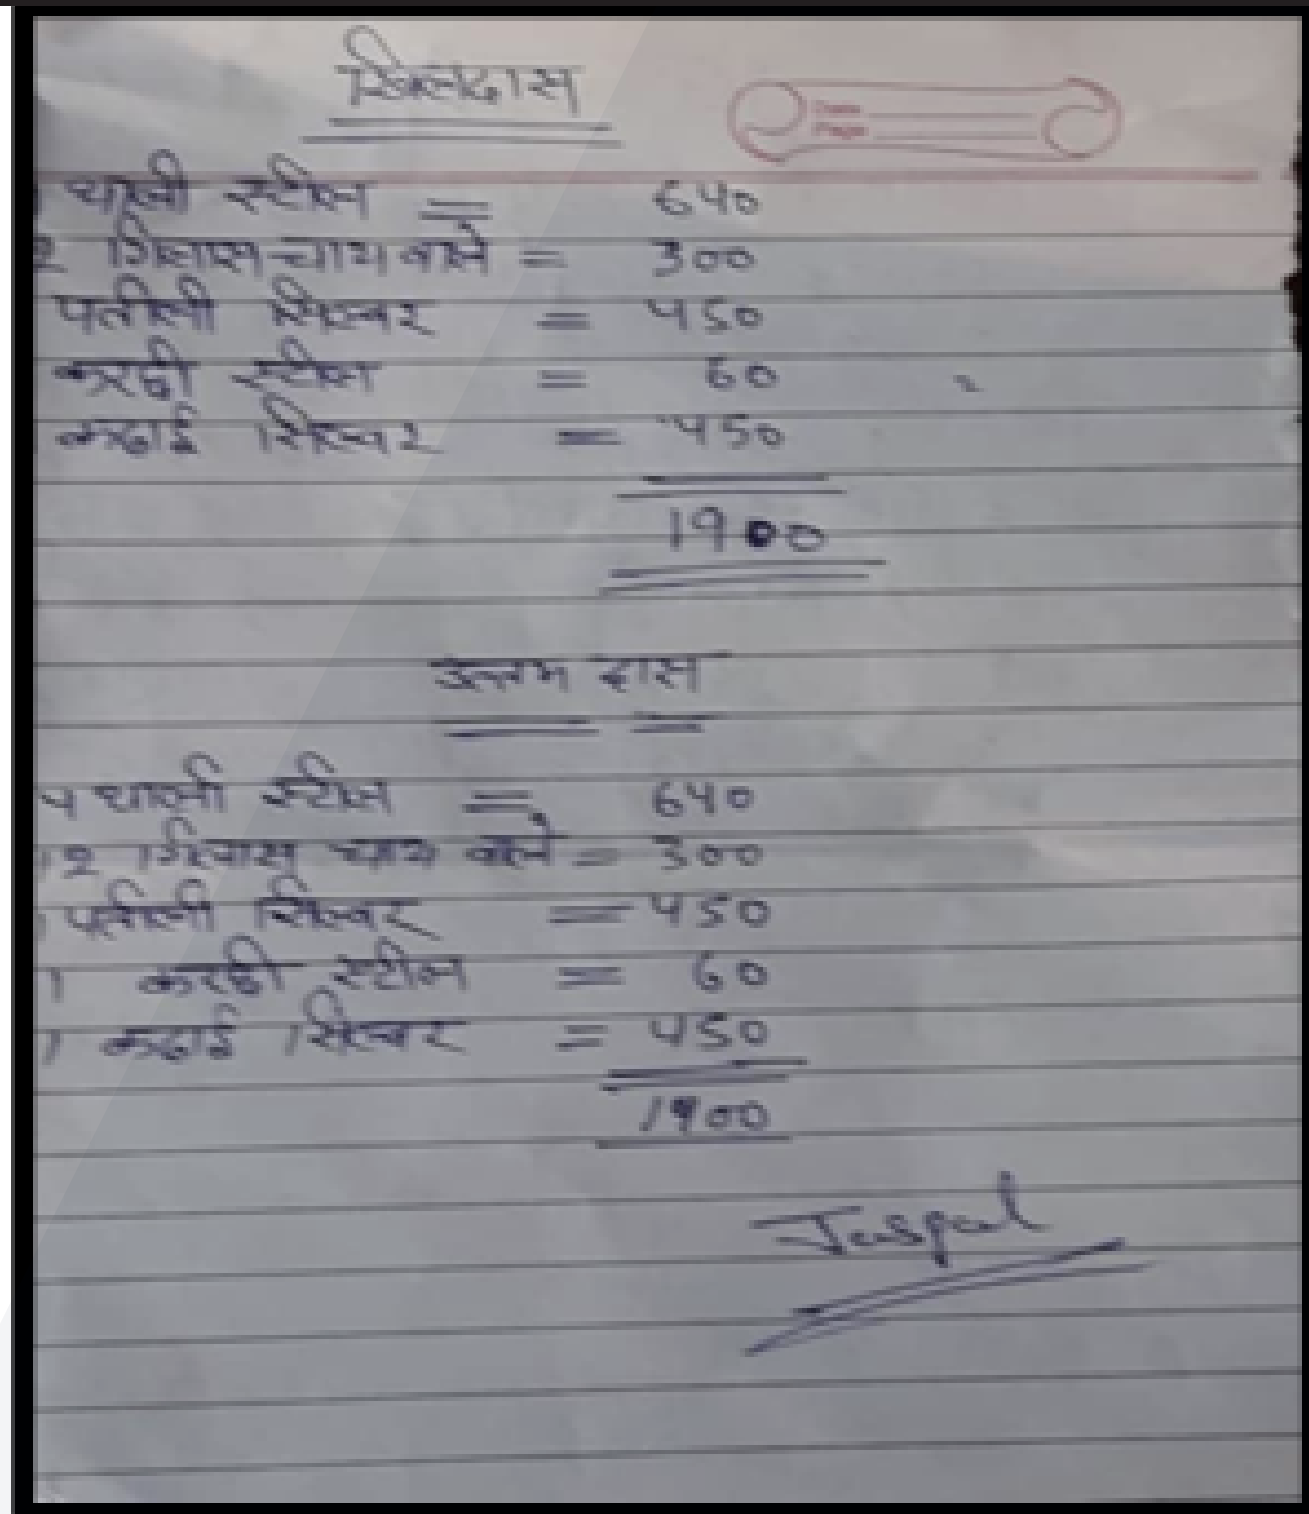 खिलदास
Date
Page
थाली स्टील = 640
2 गिलास चाय वाले = 300
पतीली सिल्वर = 450
करछी स्टील = 60
कढाई सिल्वर = 450
1900
उत्तम दास
4 थाली स्टील = 640
12 गिलास चाय वाले = 300
1 पतीली सिल्वर = 450
1 करछी स्टील = 60
1 कढाई सिल्वर = 450
1900
Jaspal